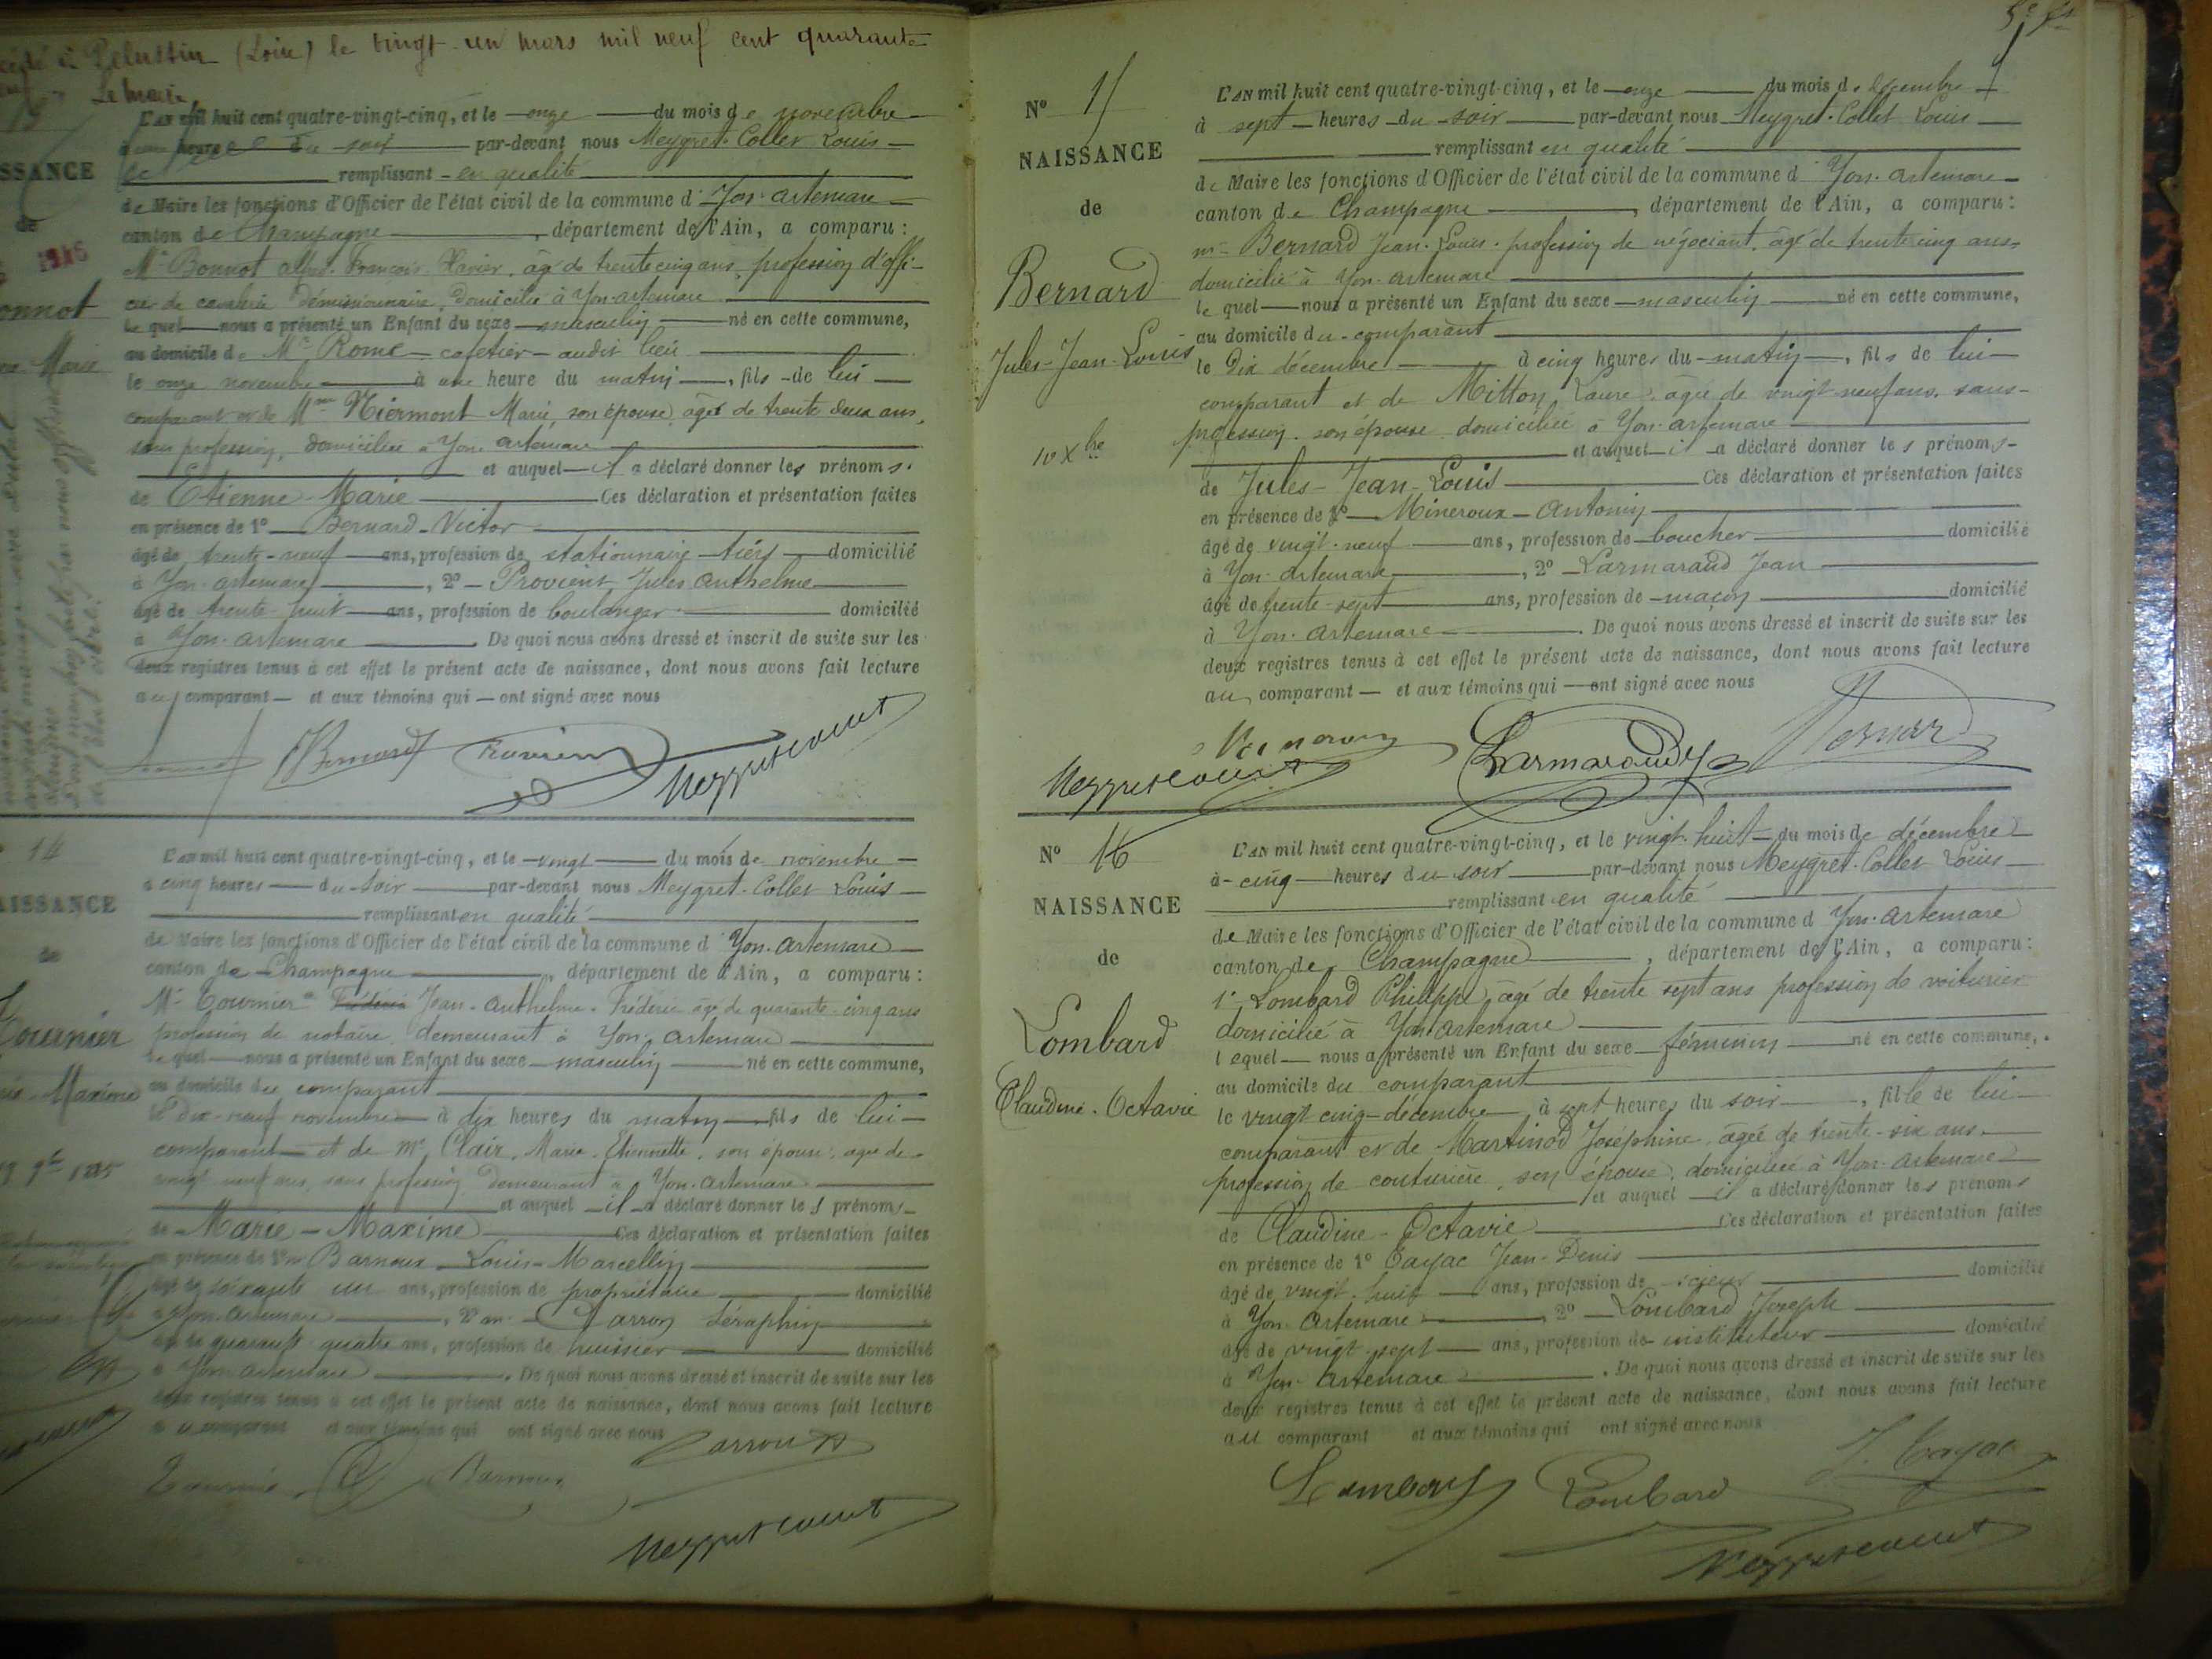 à Pelussin (Loire) le vingt-un mars mil neuf cent quarante
Le Maire
SSANCE
de
onnot
Marie
L'an mil huit cent quatre-vingt-cinq, et le onze du mois de novembre
heure du soir par-devant nous Meygret-Collet Louis
remplissant en qualité
de Maire les fonctions d'Officier de l'état civil de la commune d'Yon-artemare
canton de Champagne, département de l'Ain, a comparu :
Mr Bonnot François Xavier, âgé de trente cinq ans, profession d'offi-
cier de cavalerie démissionnaire, domicilié à Yon-artemare
lequel nous a présenté un Enfant du sexe masculin né en cette commune,
au domicile de Mr Rome cafetier audit lieu
le onze novembre à une heure du matin, fils de lui
comparant et de Mme Niermont Marie, son épouse, âgée de trente deux ans,
sans profession, domiciliée à Yon-artemare
et auquel il a déclaré donner les prénoms
de Etienne Marie Ces déclaration et présentation faites
en présence de 1º Bernard Victor
âgé de trente-neuf ans, profession de stationnaire domicilié
à Yon-artemare, 2º Provient Jules Anthelme
âgé de trente huit ans, profession de boulanger domicilié
à Yon-artemare. De quoi nous avons dressé et inscrit de suite sur les
deux registres tenus à cet effet le présent acte de naissance, dont nous avons fait lecture
au comparant et aux témoins qui ont signé avec nous
Bernard
14
AISSANCE
de
Tournier
Maxime
L'an mil huit cent quatre-vingt-cinq, et le vingt du mois de novembre
à cinq heures du soir par-devant nous Meygret-Collet Louis
remplissant en qualité
de Maire les fonctions d'Officier de l'état civil de la commune d'Yon-artemare
canton de Champagne, département de l'Ain, a comparu :
Mr Tournier Jean-Anthelme-Frédéric âgé de quarante-cinq ans
profession de notaire, demeurant à Yon-artemare
lequel nous a présenté un Enfant du sexe masculin né en cette commune,
au domicile du comparant
le dix-neuf novembre à dix heures du matin fils de lui
comparant et de Clair, Marie-Etiennette, son épouse, agée de
vingt neuf ans, sans profession, demeurant à Yon-artemare
et auquel il a déclaré donner les prénoms
de Marie-Maxime Ces déclaration et présentation faites
en présence de Barnoux Louis-Marcellin
âgé de soixante un ans, profession de propriétaire domicilié
à Yon-artemare, Carron Séraphin
âgé de quarante-quatre ans, profession de huissier domicilié
à Yon-artemare. De quoi nous avons dressé et inscrit de suite sur les
deux registres tenus à cet effet le présent acte de naissance, dont nous avons fait lecture
au comparant et aux témoins qui ont signé avec nous
Barnoux
Nº 15
NAISSANCE
de
Bernard
Jules-Jean-Louis
10 Xbre
L'AN mil huit cent quatre-vingt-cinq, et le onze du mois de décembre
à sept heures du soir par-devant nous Meygret-Collet Louis
remplissant en qualité
de Maire les fonctions d'Officier de l'état civil de la commune d'Yon-artemare
canton de Champagne, département de l'Ain, a comparu :
mr Bernard Jean-Louis, profession de négociant, âgé de trente cinq ans,
domicilié à Yon-artemare
lequel nous a présenté un Enfant du sexe masculin né en cette commune,
au domicile du comparant
le dix décembre à cinq heures du matin, fils de lui
comparant et de Mitton Laure, agée de vingt-neuf ans, sans
profession, son épouse domiciliée à Yon-artemare
et auquel il a déclaré donner les prénoms
de Jules-Jean-Louis Ces déclaration et présentation faites
en présence de 1º Mineroux Antonin
âgé de vingt-neuf ans, profession de boucher domicilié
à Yon-artemare, 2º Larmaraud Jean
âgé de trente-sept ans, profession de maçon domicilié
à Yon-artemare. De quoi nous avons dressé et inscrit de suite sur les
deux registres tenus à cet effet le présent acte de naissance, dont nous avons fait lecture
au comparant et aux témoins qui ont signé avec nous
Larmaraud Bernard
Nº 16
NAISSANCE
de
Lombard
Claudine-Octavie
L'AN mil huit cent quatre-vingt-cinq, et le vingt-huit du mois de décembre
à cinq heures du soir par-devant nous Meygret-Collet Louis
remplissant en qualité
de Maire les fonctions d'Officier de l'état civil de la commune d'Yon-artemare
canton de Champagne, département de l'Ain, a comparu :
Lombard Philippe, âgé de trente sept ans profession de voiturier
domicilié à Yon-artemare
lequel nous a présenté un Enfant du sexe féminin né en cette commune,
au domicile du comparant
le vingt cinq décembre à sept heures du soir, fille de lui
comparant et de Martinod Joséphine, âgée de trente-six ans,
profession de couturière, son épouse, domiciliée à Yon-artemare
et auquel il a déclaré donner les prénoms
de Claudine-Octavie Ces déclaration et présentation faites
en présence de 1º Cayac Jean-Denis
âgé de vingt-huit ans, profession de scieur domicilié
à Yon-Artemare, 2º Lombard Joseph
âgé de vingt-sept ans, profession de instituteur domicilié
à Yon-Artemare. De quoi nous avons dressé et inscrit de suite sur les
deux registres tenus à cet effet le présent acte de naissance, dont nous avons fait lecture
au comparant et aux témoins qui ont signé avec nous
Lombard Lombard J. Cayac